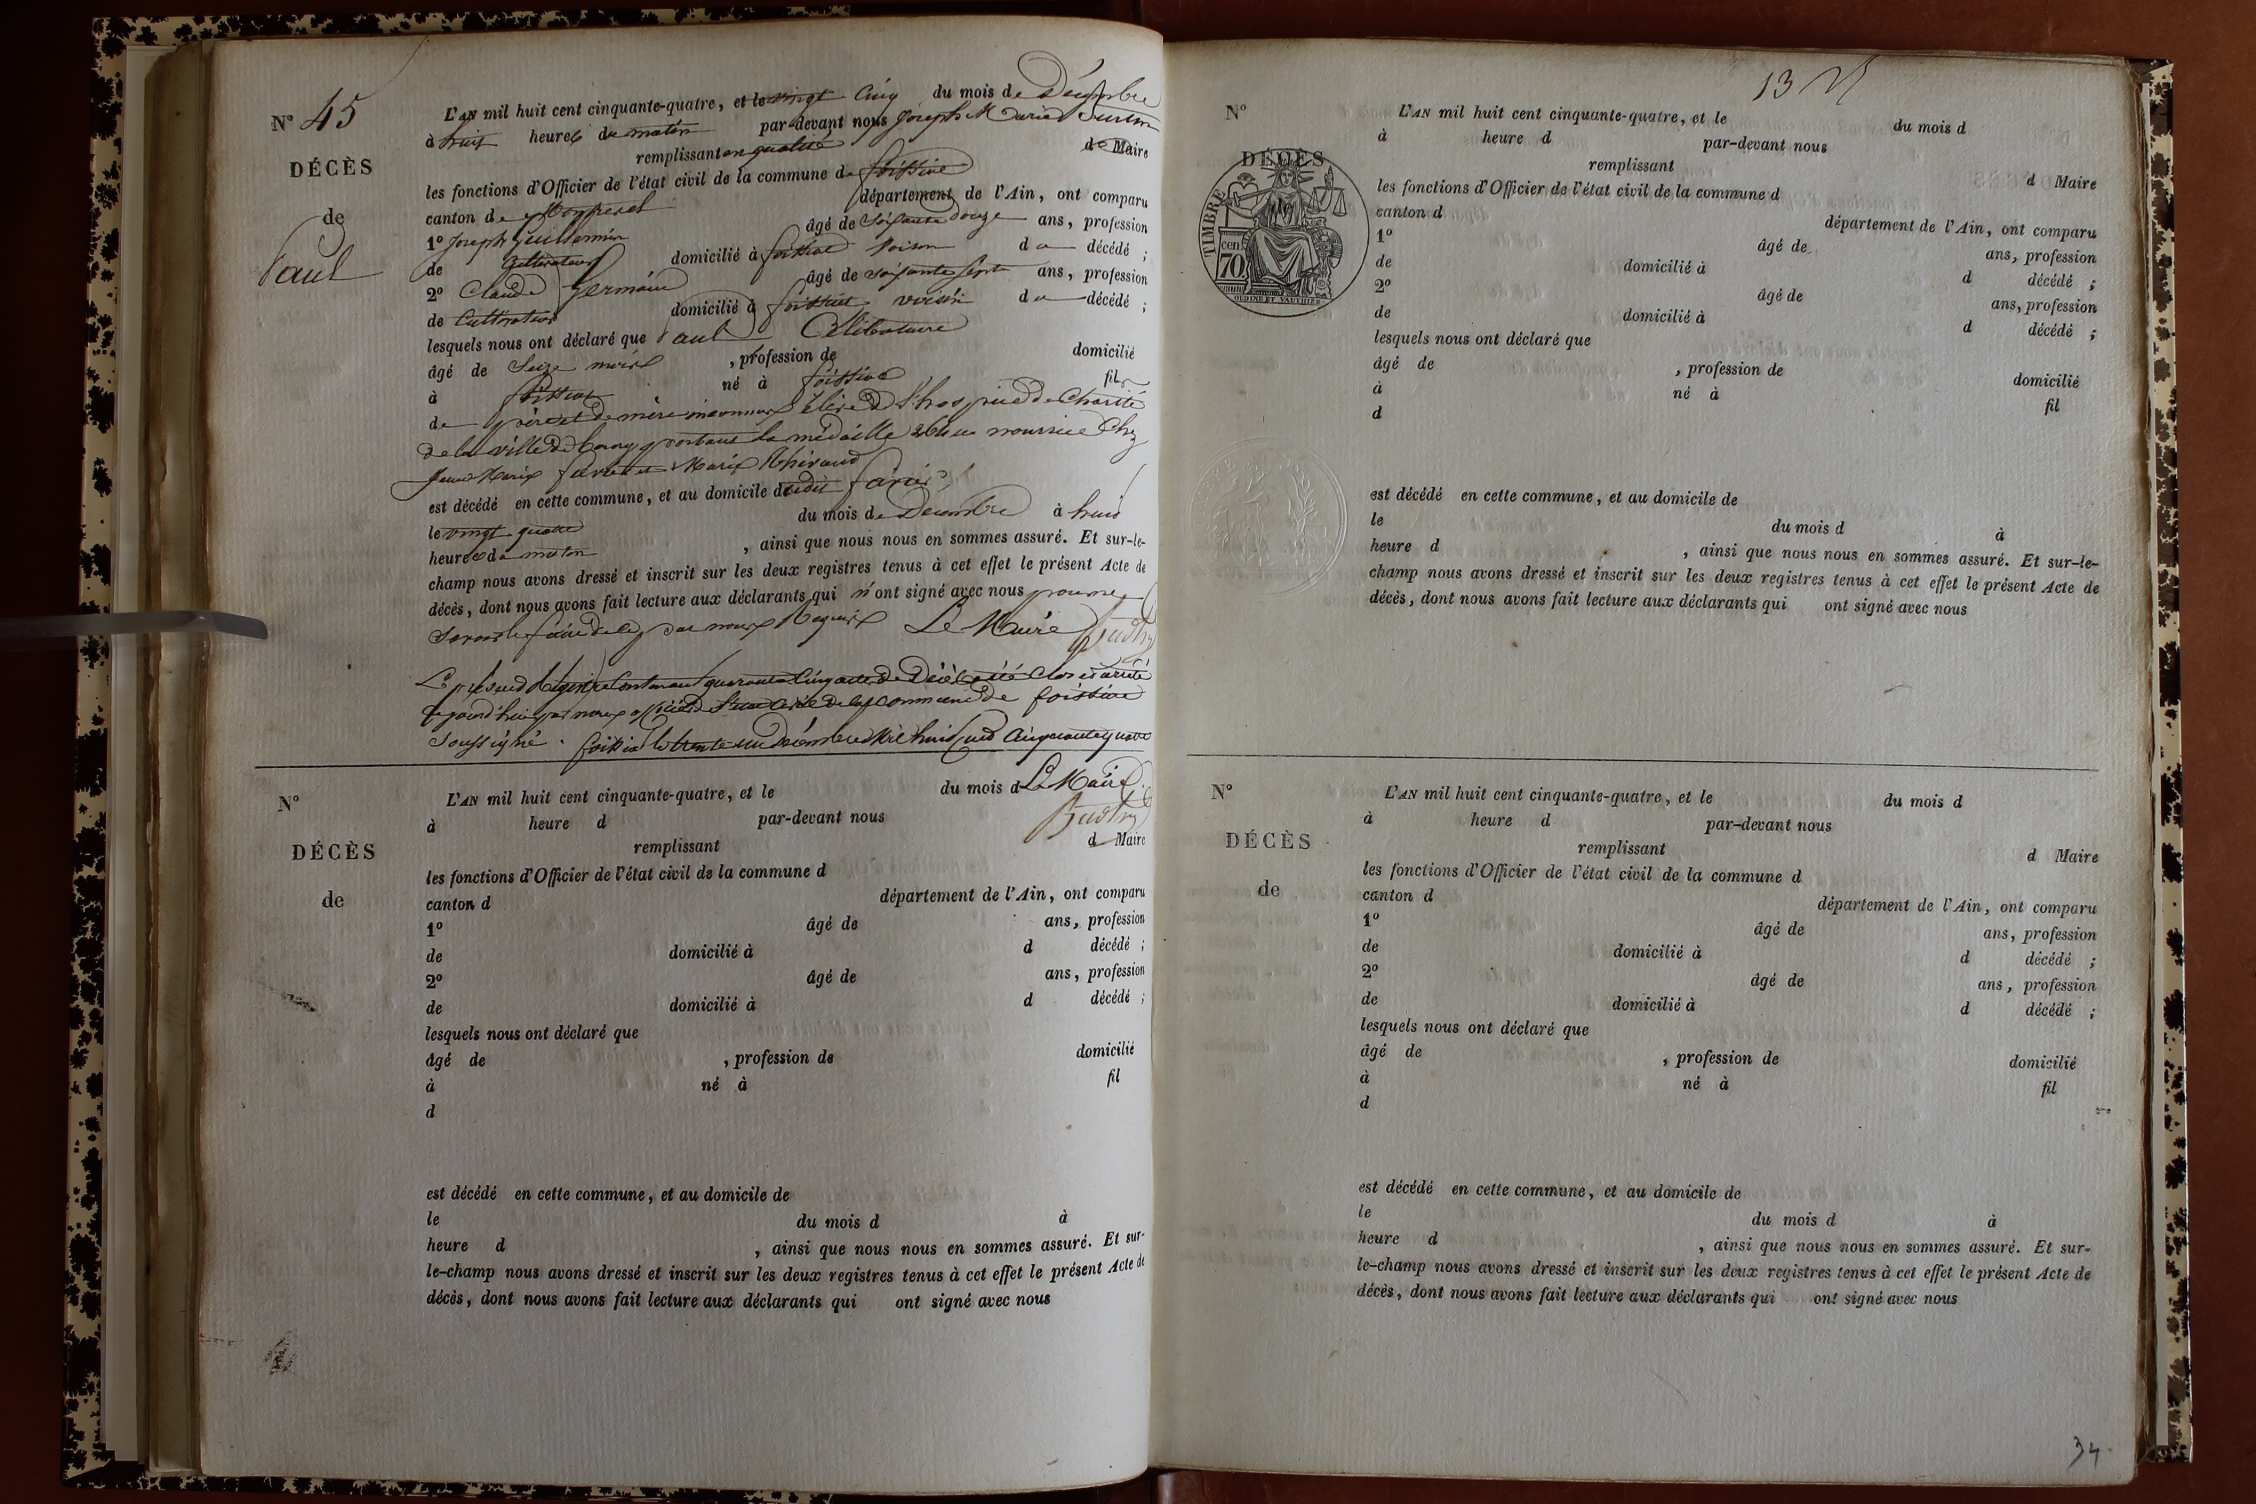 N° 45
DÉCÈS
de
Paul
L'AN mil huit cent cinquante-quatre, et le vingt Cinq du mois de Décembre
à huit heures du matin par-devant nous Joseph Marie
remplissant en qualité de Maire
les fonctions d'Officier de l'état civil de la commune de foissiat
canton de Montrevel département de l'Ain, ont comparu
1° Joseph Guillermin âgé de soisante douze ans, profession
de Cultivateur domicilié à foissiat voisin du décédé ;
2° Claude Germain âgé de soisante sept ans, profession
de Cultivateur domicilié à foissiat voisin du décédé ;
lesquels nous ont déclaré que Paul Célibataire
âgé de Seize mois , profession de domicilié
à foissiat né à foissiat fils
de père et de mère inconnus élève de l'hospice de Charité
de la ville de bourg portant la médaille en nourrice Chez
Jean Marie et Marie
est décédé en cette commune, et au domicile dudit
le vingt quatre du mois de Décembre à huit
heures du matin , ainsi que nous nous en sommes assuré. Et sur-le-
champ nous avons dressé et inscrit sur les deux registres tenus à cet effet le présent Acte de
décès, dont nous avons fait lecture aux déclarants qui n'ont signé avec nous pour ne
Savoir le faire de ce par nous Requis Le Maire
Le présent Registre Contenant quarante Cinq actes de Décès a été Clos et arrêté
aujourd'hui par nous officier de l'état Civil de la Commune de foissiat
Soussigné. foissiat le trente un Décembre Mil huit Cent Cinquante quatre
Le Maire
N°
DÉCÈS
de
L'AN mil huit cent cinquante-quatre, et le du mois d
à heure d par-devant nous
remplissant d Maire
les fonctions d'Officier de l'état civil de la commune d
canton d département de l'Ain, ont comparu
1° âgé de ans, profession
de domicilié à d décédé ;
2° âgé de ans, profession
de domicilié à d décédé ;
lesquels nous ont déclaré que
âgé de , profession de domicilié
à né à fil
d
est décédé en cette commune, et au domicile de
le du mois d à
heure d , ainsi que nous nous en sommes assuré. Et sur-
le-champ nous avons dressé et inscrit sur les deux registres tenus à cet effet le présent Acte de
décès, dont nous avons fait lecture aux déclarants qui ont signé avec nous
13
N°
DÉCÈS
TIMBRE
cen
70
OUDINE ET VAUTHIER
L'AN mil huit cent cinquante-quatre, et le du mois d
à heure d par-devant nous
remplissant d Maire
les fonctions d'Officier de l'état civil de la commune d
canton d département de l'Ain, ont comparu
1° âgé de ans, profession
de domicilié à d décédé ;
2° âgé de ans, profession
de domicilié à d décédé ;
lesquels nous ont déclaré que
âgé de , profession de domicilié
à né à fil
d
est décédé en cette commune, et au domicile de
le du mois d à
heure d , ainsi que nous nous en sommes assuré. Et sur-le-
champ nous avons dressé et inscrit sur les deux registres tenus à cet effet le présent Acte de
décès, dont nous avons fait lecture aux déclarants qui ont signé avec nous
N°
DÉCÈS
de
L'AN mil huit cent cinquante-quatre, et le du mois d
à heure d par-devant nous
remplissant d Maire
les fonctions d'Officier de l'état civil de la commune d
canton d département de l'Ain, ont comparu
1° âgé de ans, profession
de domicilié à d décédé ;
2° âgé de ans, profession
de domicilié à d décédé ;
lesquels nous ont déclaré que
âgé de , profession de domicilié
à né à fil
d
est décédé en cette commune, et au domicile de
le du mois d à
heure d , ainsi que nous nous en sommes assuré. Et sur-
le-champ nous avons dressé et inscrit sur les deux registres tenus à cet effet le présent Acte de
décès, dont nous avons fait lecture aux déclarants qui ont signé avec nous
34